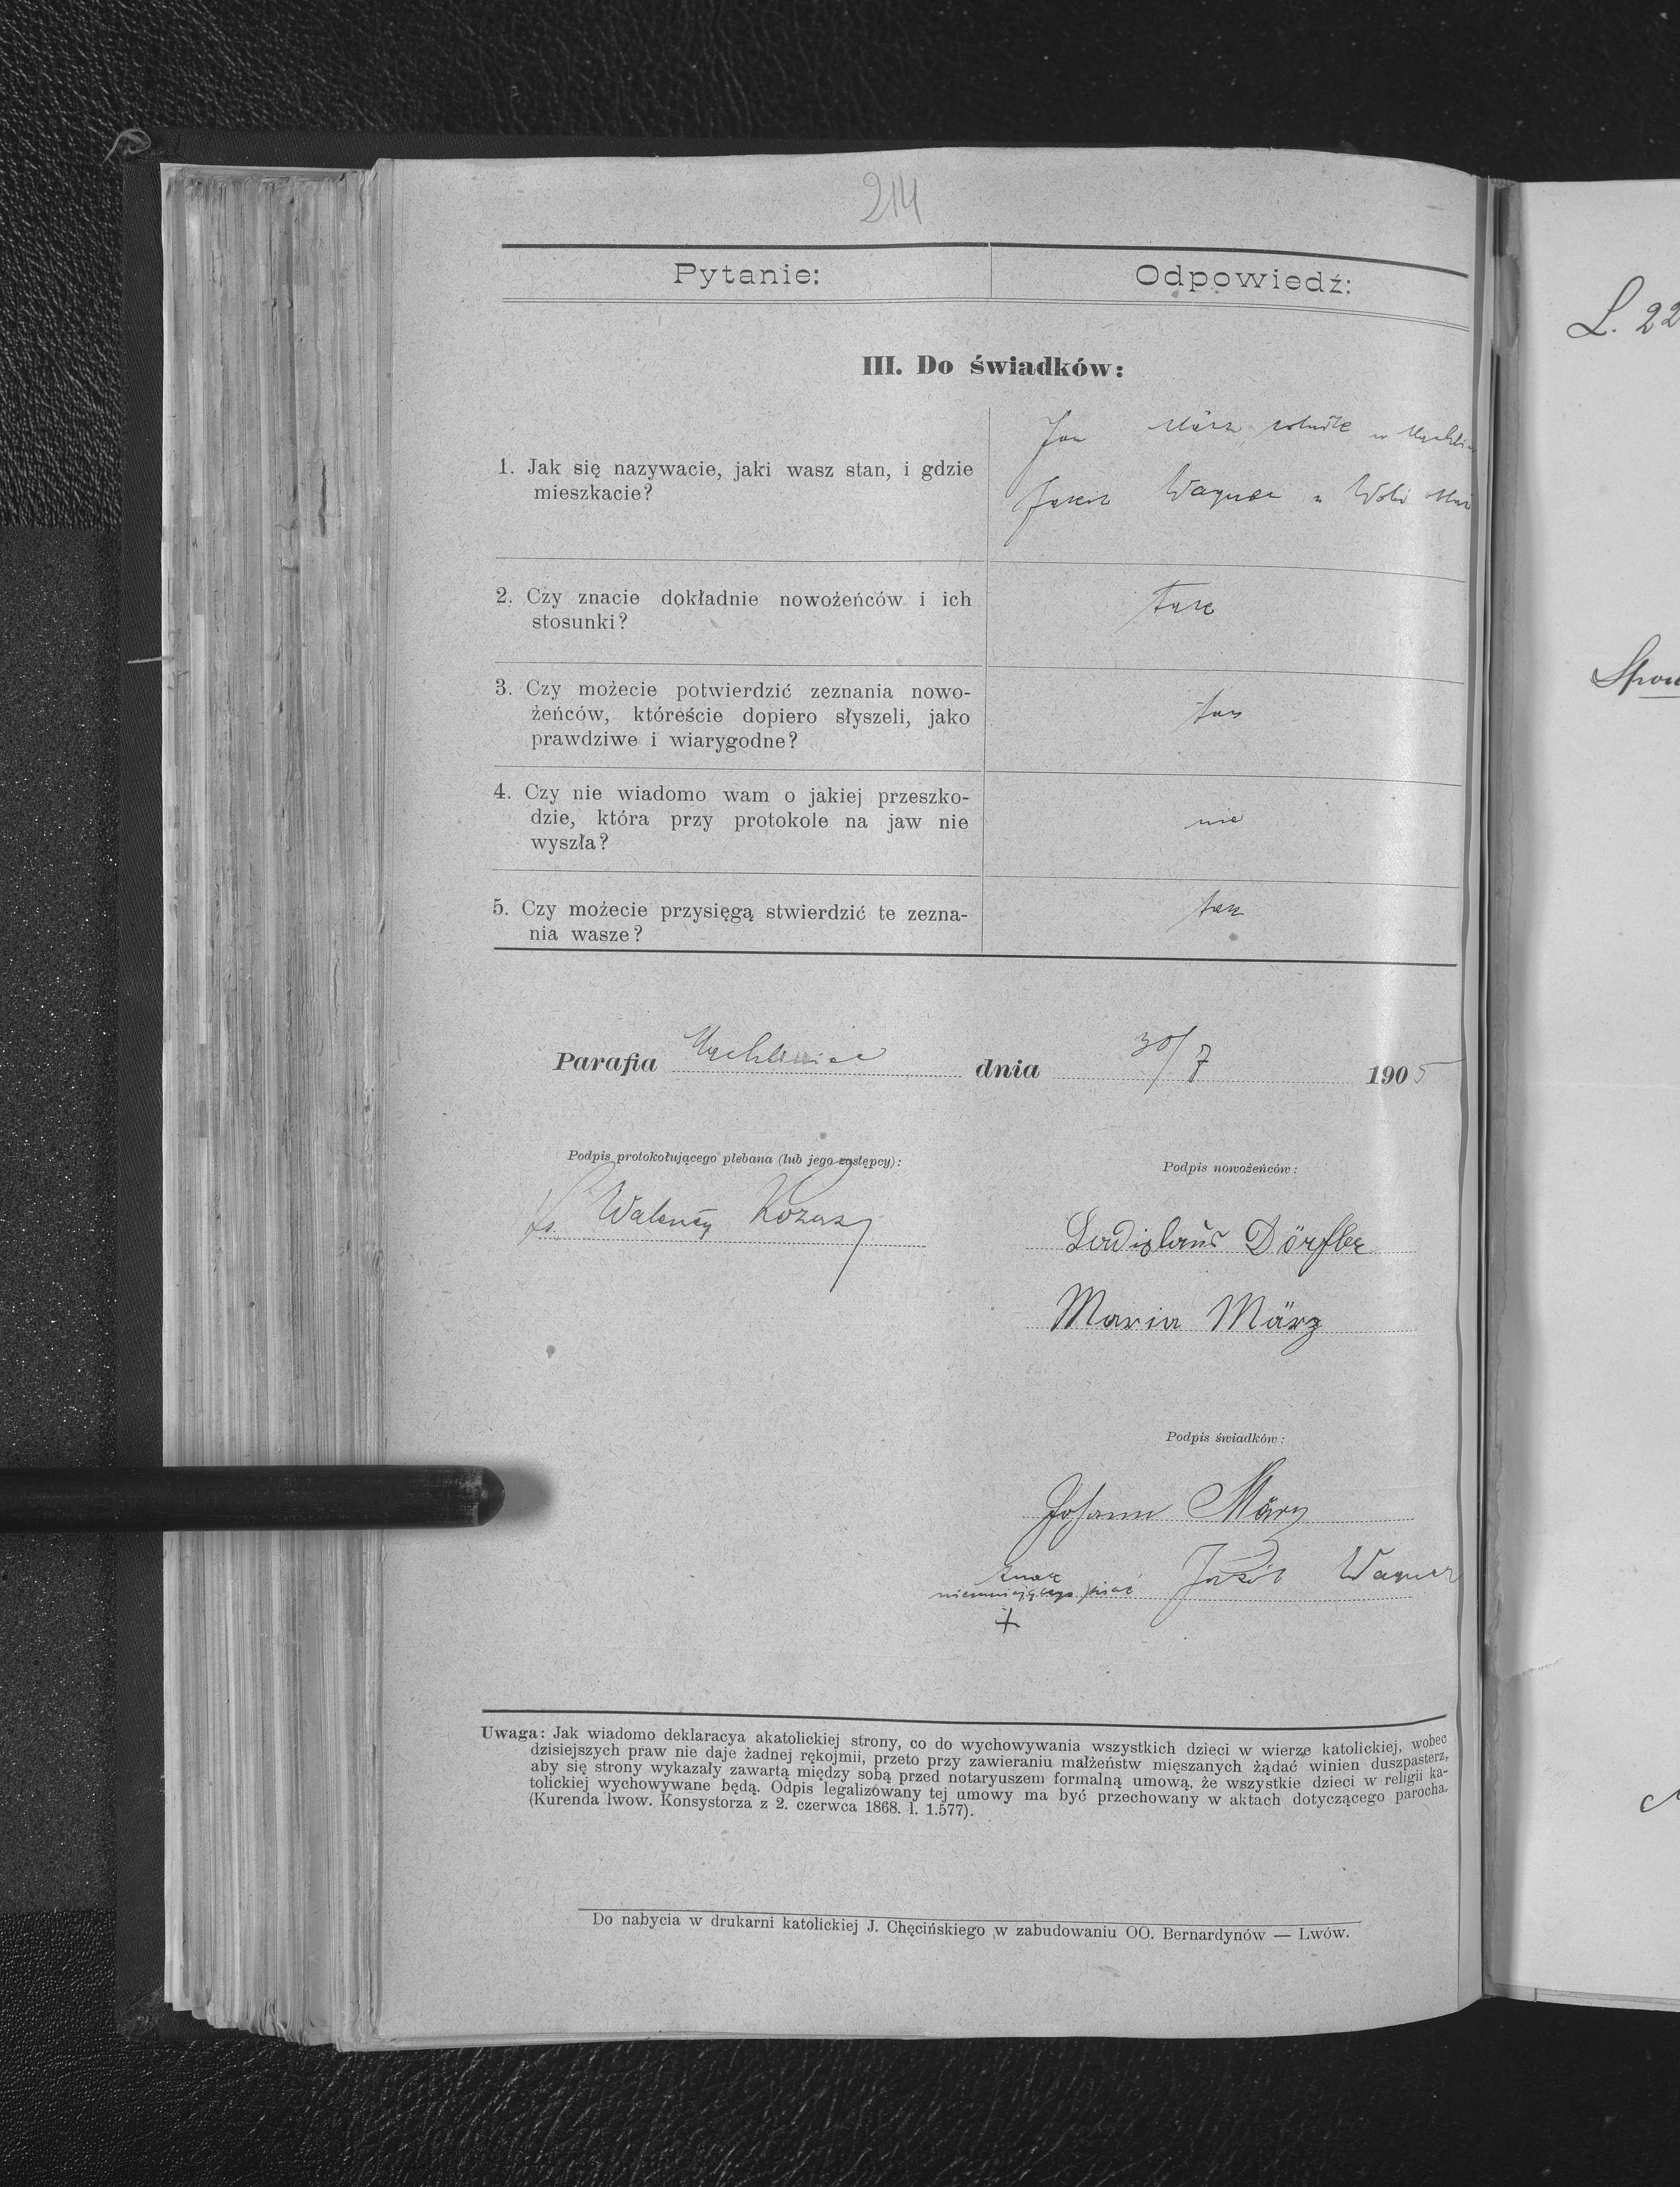 214
Pytanie: Odpowiedź:
III. Do świadków:
1. Jak się nazywacie, jaki wasz stan, i gdzie
mieszkacie?
Jan März rolnik w
Jakób Wagner w Woli
2. Czy znacie dokładnie nowożeńców i ich
stosunki?
tak
3. Czy możecie potwierdzić zeznania nowo-
żeńców, któreście dopiero słyszeli, jako
prawdziwe i wiarygodne?
tak
4. Czy nie wiadomo wam o jakiej przeszko-
dzie, która przy protokole na jaw nie
wyszła?
nie
5. Czy możecie przysięgą stwierdzić te zezna-
nia wasze?
tak
Parafia Machliniec dnia 30/7 1905
Podpis protokołującego plebana (lub jego zastępcy):
Podpis nowożeńców:
Ks. Walenty
Ladislaus Dörfler
Maria März
Podpis świadków:
Johann März
znak
nieumiejącego pisać Jakób Wagner
+
Uwaga: Jak wiadomo deklaracya akatolickiej strony, co do wychowywania wszystkich dzieci w wierze katolickiej, wobec
dzisiejszych praw nie daje żadnej rękojmii, przeto przy zawieraniu małżeństw mięszanych żądać winien duszpasterz,
aby się strony wykazały zawartą między sobą przed notaryuszem formalną umową, że wszystkie dzieci w religii ka-
tolickiej wychowywane będą. Odpis legalizowany tej umowy ma być przechowany w aktach dotyczącego parocha.
(Kurenda lwow. Konsystorza z 2. czerwca 1868. l. 1.577).
Do nabycia w drukarni katolickiej J. Chęcińskiego w zabudowaniu OO. Bernardynów — Lwów.
L. 22